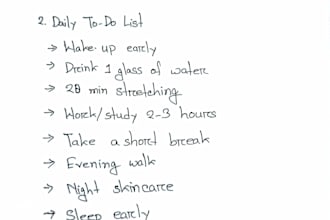 2. Daily To-Do List
→ Wake up early
→ Drink 1 glass of water
→ 20 min stretching
→ Work/study 2-3 hours
→ Take a short break
→ Evening walk
→ Night skincare
→ Sleep early